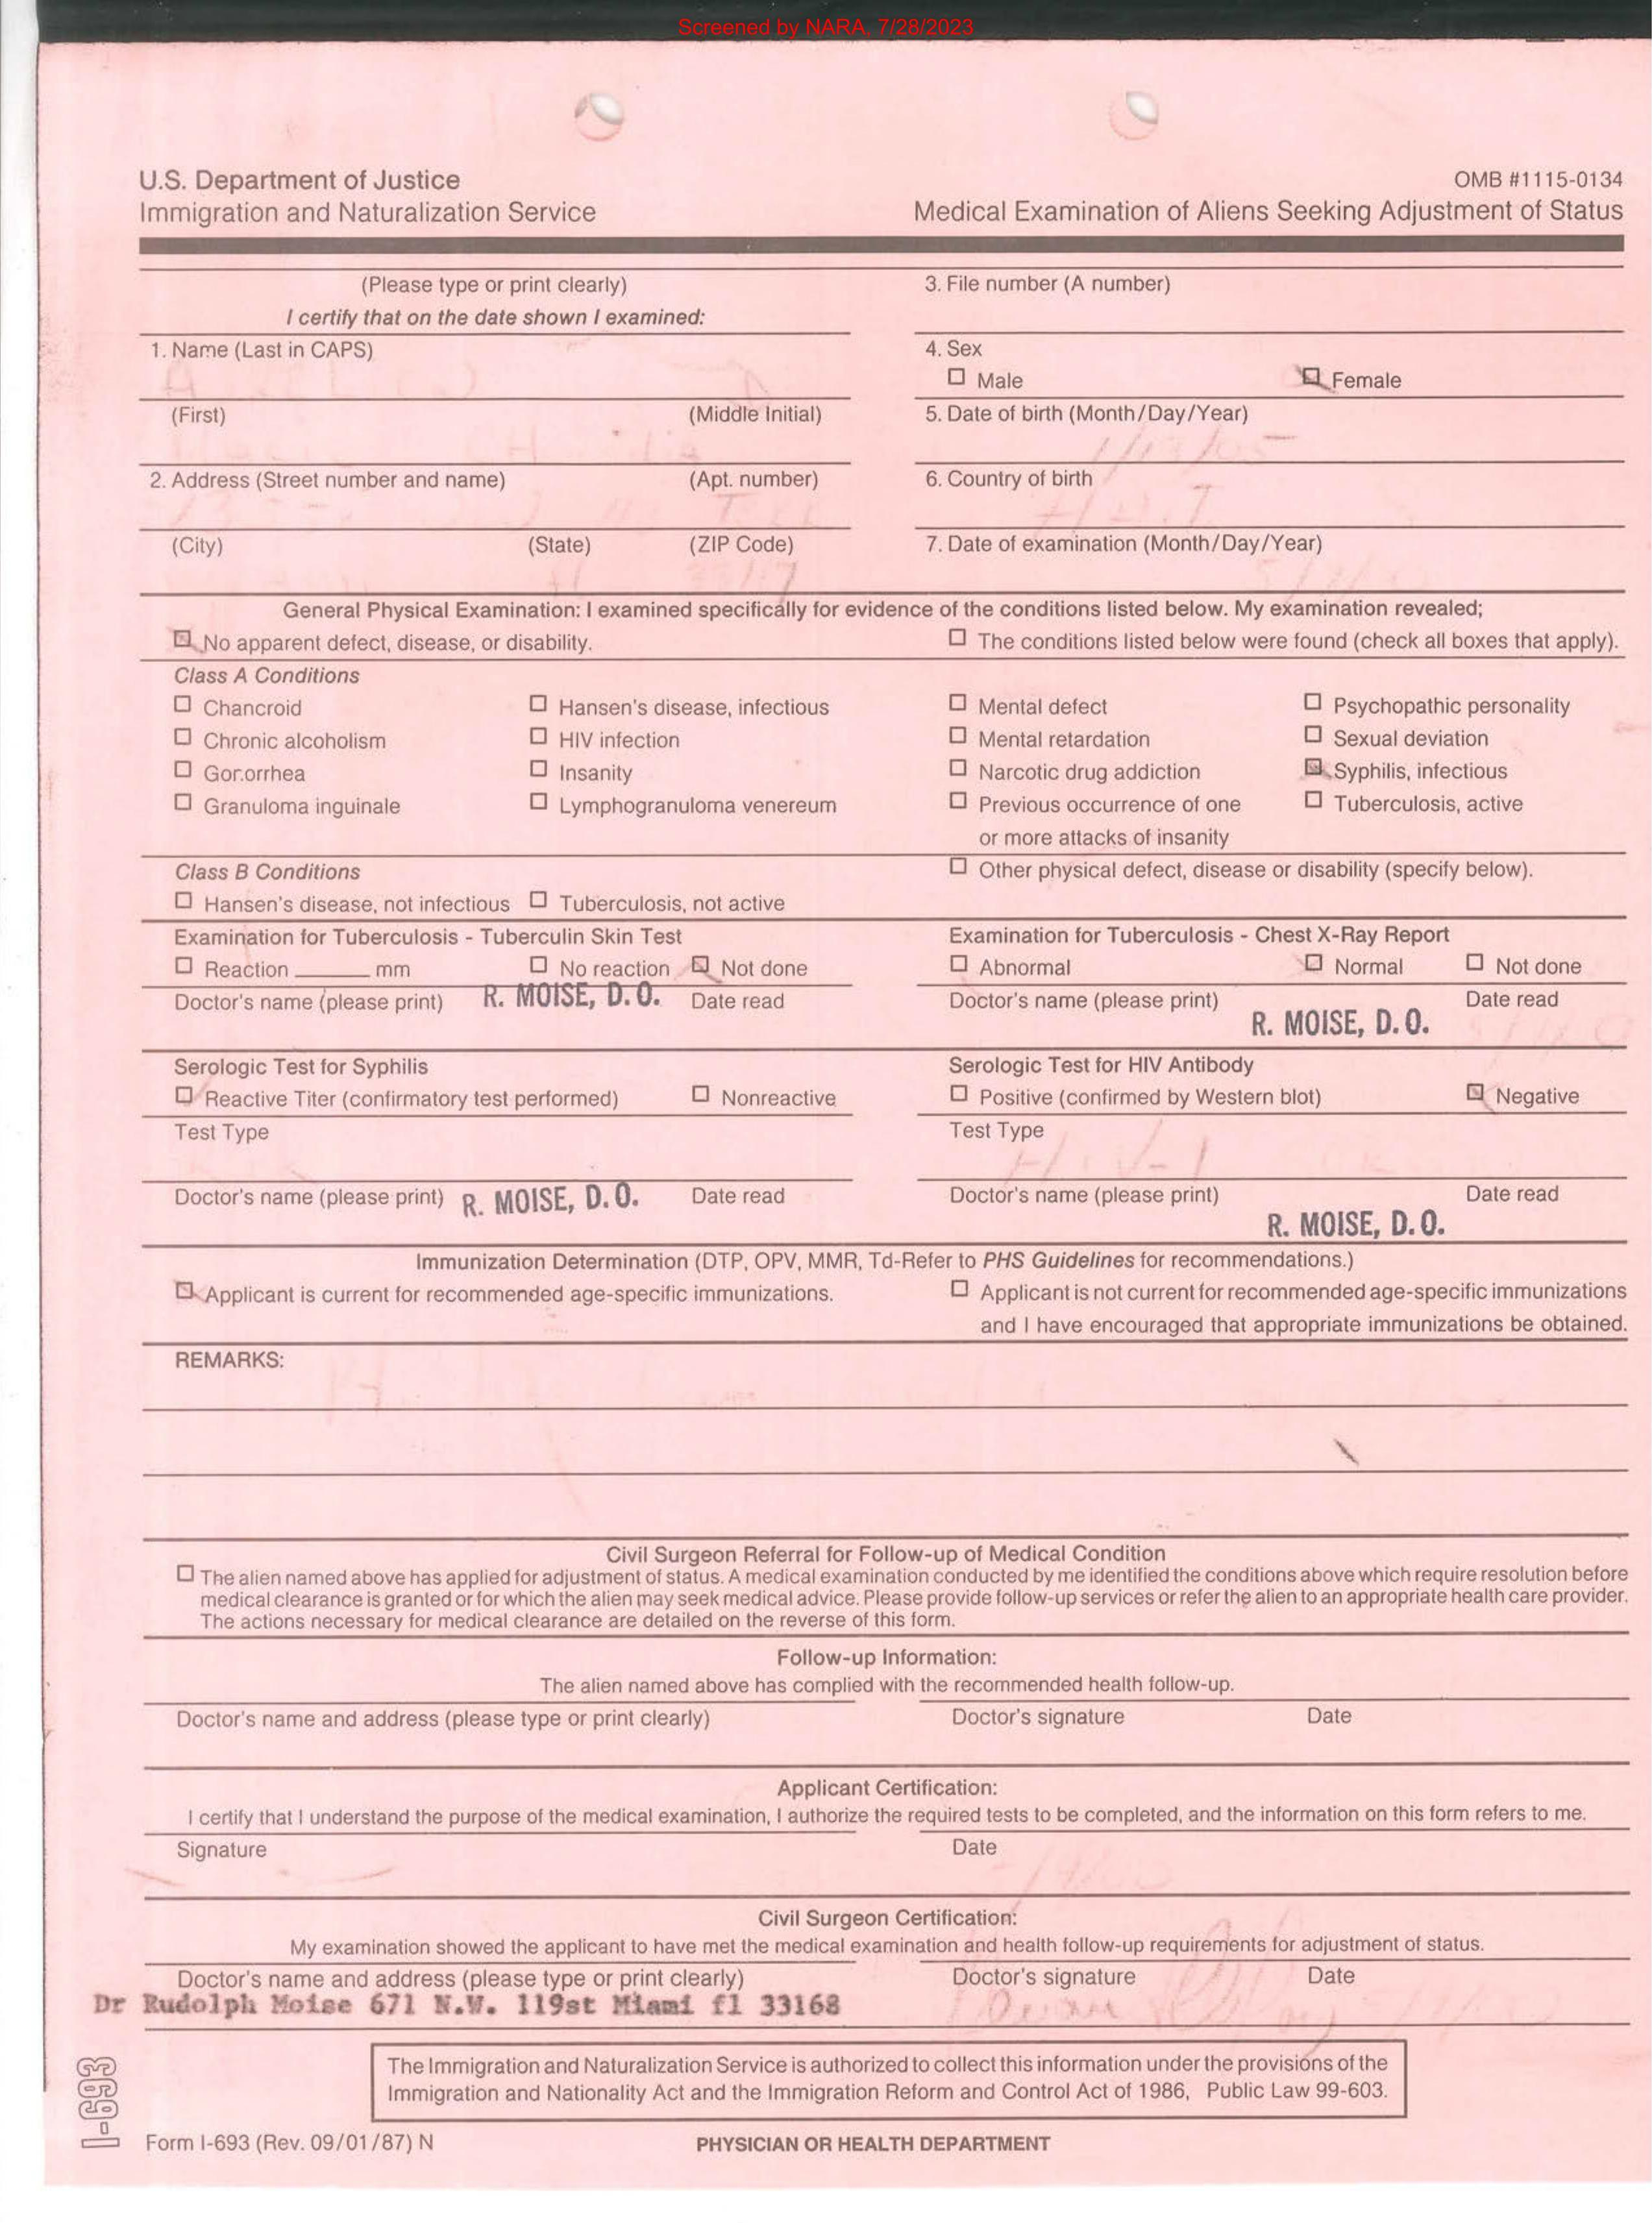 Screened by NARA, 7/28/2023
U.S. Department of Justice
Immigration and Naturalization Service
OMB #1115-0134
Medical Examination of Aliens Seeking Adjustment of Status
(Please type or print clearly)
I certify that on the date shown I examined:
3. File number (A number)
1. Name (Last in CAPS)
4. Sex
☐ Male ☒ Female
(First) (Middle Initial)
5. Date of birth (Month/Day/Year)
2. Address (Street number and name) (Apt. number)
6. Country of birth
(City) (State) (ZIP Code)
7. Date of examination (Month/Day/Year)
General Physical Examination: I examined specifically for evidence of the conditions listed below. My examination revealed;
☒ No apparent defect, disease, or disability. ☐ The conditions listed below were found (check all boxes that apply).
Class A Conditions
☐ Chancroid ☐ Hansen's disease, infectious ☐ Mental defect ☐ Psychopathic personality
☐ Chronic alcoholism ☐ HIV infection ☐ Mental retardation ☐ Sexual deviation
☐ Gor.orrhea ☐ Insanity ☐ Narcotic drug addiction ☒ Syphilis, infectious
☐ Granuloma inguinale ☐ Lymphogranuloma venereum ☐ Previous occurrence of one ☐ Tuberculosis, active
or more attacks of insanity
Class B Conditions
☐ Other physical defect, disease or disability (specify below).
☐ Hansen's disease, not infectious ☐ Tuberculosis, not active
Examination for Tuberculosis - Tuberculin Skin Test
☐ Reaction ______ mm ☐ No reaction ☒ Not done
Doctor's name (please print) R. MOISE, D.O. Date read
Examination for Tuberculosis - Chest X-Ray Report
☐ Abnormal ☒ Normal ☐ Not done
Doctor's name (please print) Date read
R. MOISE, D.O.
Serologic Test for Syphilis
☒ Reactive Titer (confirmatory test performed) ☐ Nonreactive
Test Type
Doctor's name (please print) R. MOISE, D.O. Date read
Serologic Test for HIV Antibody
☐ Positive (confirmed by Western blot) ☒ Negative
Test Type
HIV-1
Doctor's name (please print) Date read
R. MOISE, D.O.
Immunization Determination (DTP, OPV, MMR, Td-Refer to PHS Guidelines for recommendations.)
☒ Applicant is current for recommended age-specific immunizations.
☐ Applicant is not current for recommended age-specific immunizations
and I have encouraged that appropriate immunizations be obtained.
REMARKS:
Civil Surgeon Referral for Follow-up of Medical Condition
☐ The alien named above has applied for adjustment of status. A medical examination conducted by me identified the conditions above which require resolution before
medical clearance is granted or for which the alien may seek medical advice. Please provide follow-up services or refer the alien to an appropriate health care provider.
The actions necessary for medical clearance are detailed on the reverse of this form.
Follow-up Information:
The alien named above has complied with the recommended health follow-up.
Doctor's name and address (please type or print clearly) Doctor's signature Date
Applicant Certification:
I certify that I understand the purpose of the medical examination, I authorize the required tests to be completed, and the information on this form refers to me.
Signature Date
Civil Surgeon Certification:
My examination showed the applicant to have met the medical examination and health follow-up requirements for adjustment of status.
Doctor's name and address (please type or print clearly) Doctor's signature Date
Dr Rudolph Moise 671 N.W. 119st Miami fl 33168
The Immigration and Naturalization Service is authorized to collect this information under the provisions of the
Immigration and Nationality Act and the Immigration Reform and Control Act of 1986, Public Law 99-603.
I-693
Form I-693 (Rev. 09/01/87) N
PHYSICIAN OR HEALTH DEPARTMENT